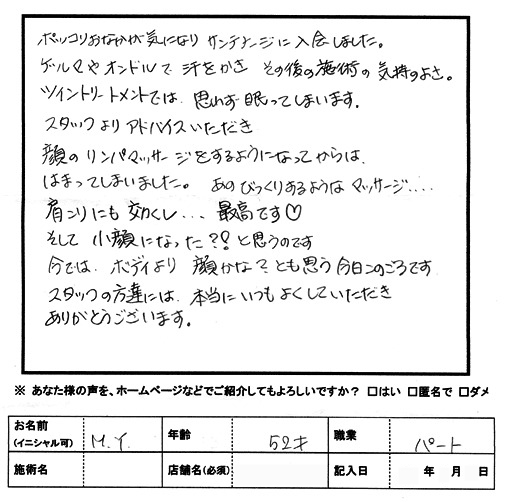 ポッコリおなかが気になり サンテナージに入会しました。
ゲルマやオンドルで 汗をかき その後の施術の気持のよさ。
ツイントリートメントでは、思わず眠ってしまいます。
スタッフよりアドバイスいただき
顔のリンパマッサージをするようになってからは、
はまってしまいました。 あのびっくりするようなマッサージ....
肩こりにも効くし... 最高です♡
そして 小顔になった?!! と思うのです
今では、ボディより 顔かな?とも思う今日このごろです
スタッフの方達には、本当にいつもよくしていただき
ありがとうございます。
※ あなた様の声を、ホームページなどでご紹介してもよろしいですか? □はい □匿名で □ダメ
お名前(イニシャル可) M.Y. 年齢 52才 職業 パート
施術名 店舗名(必須) 記入日 年 月 日